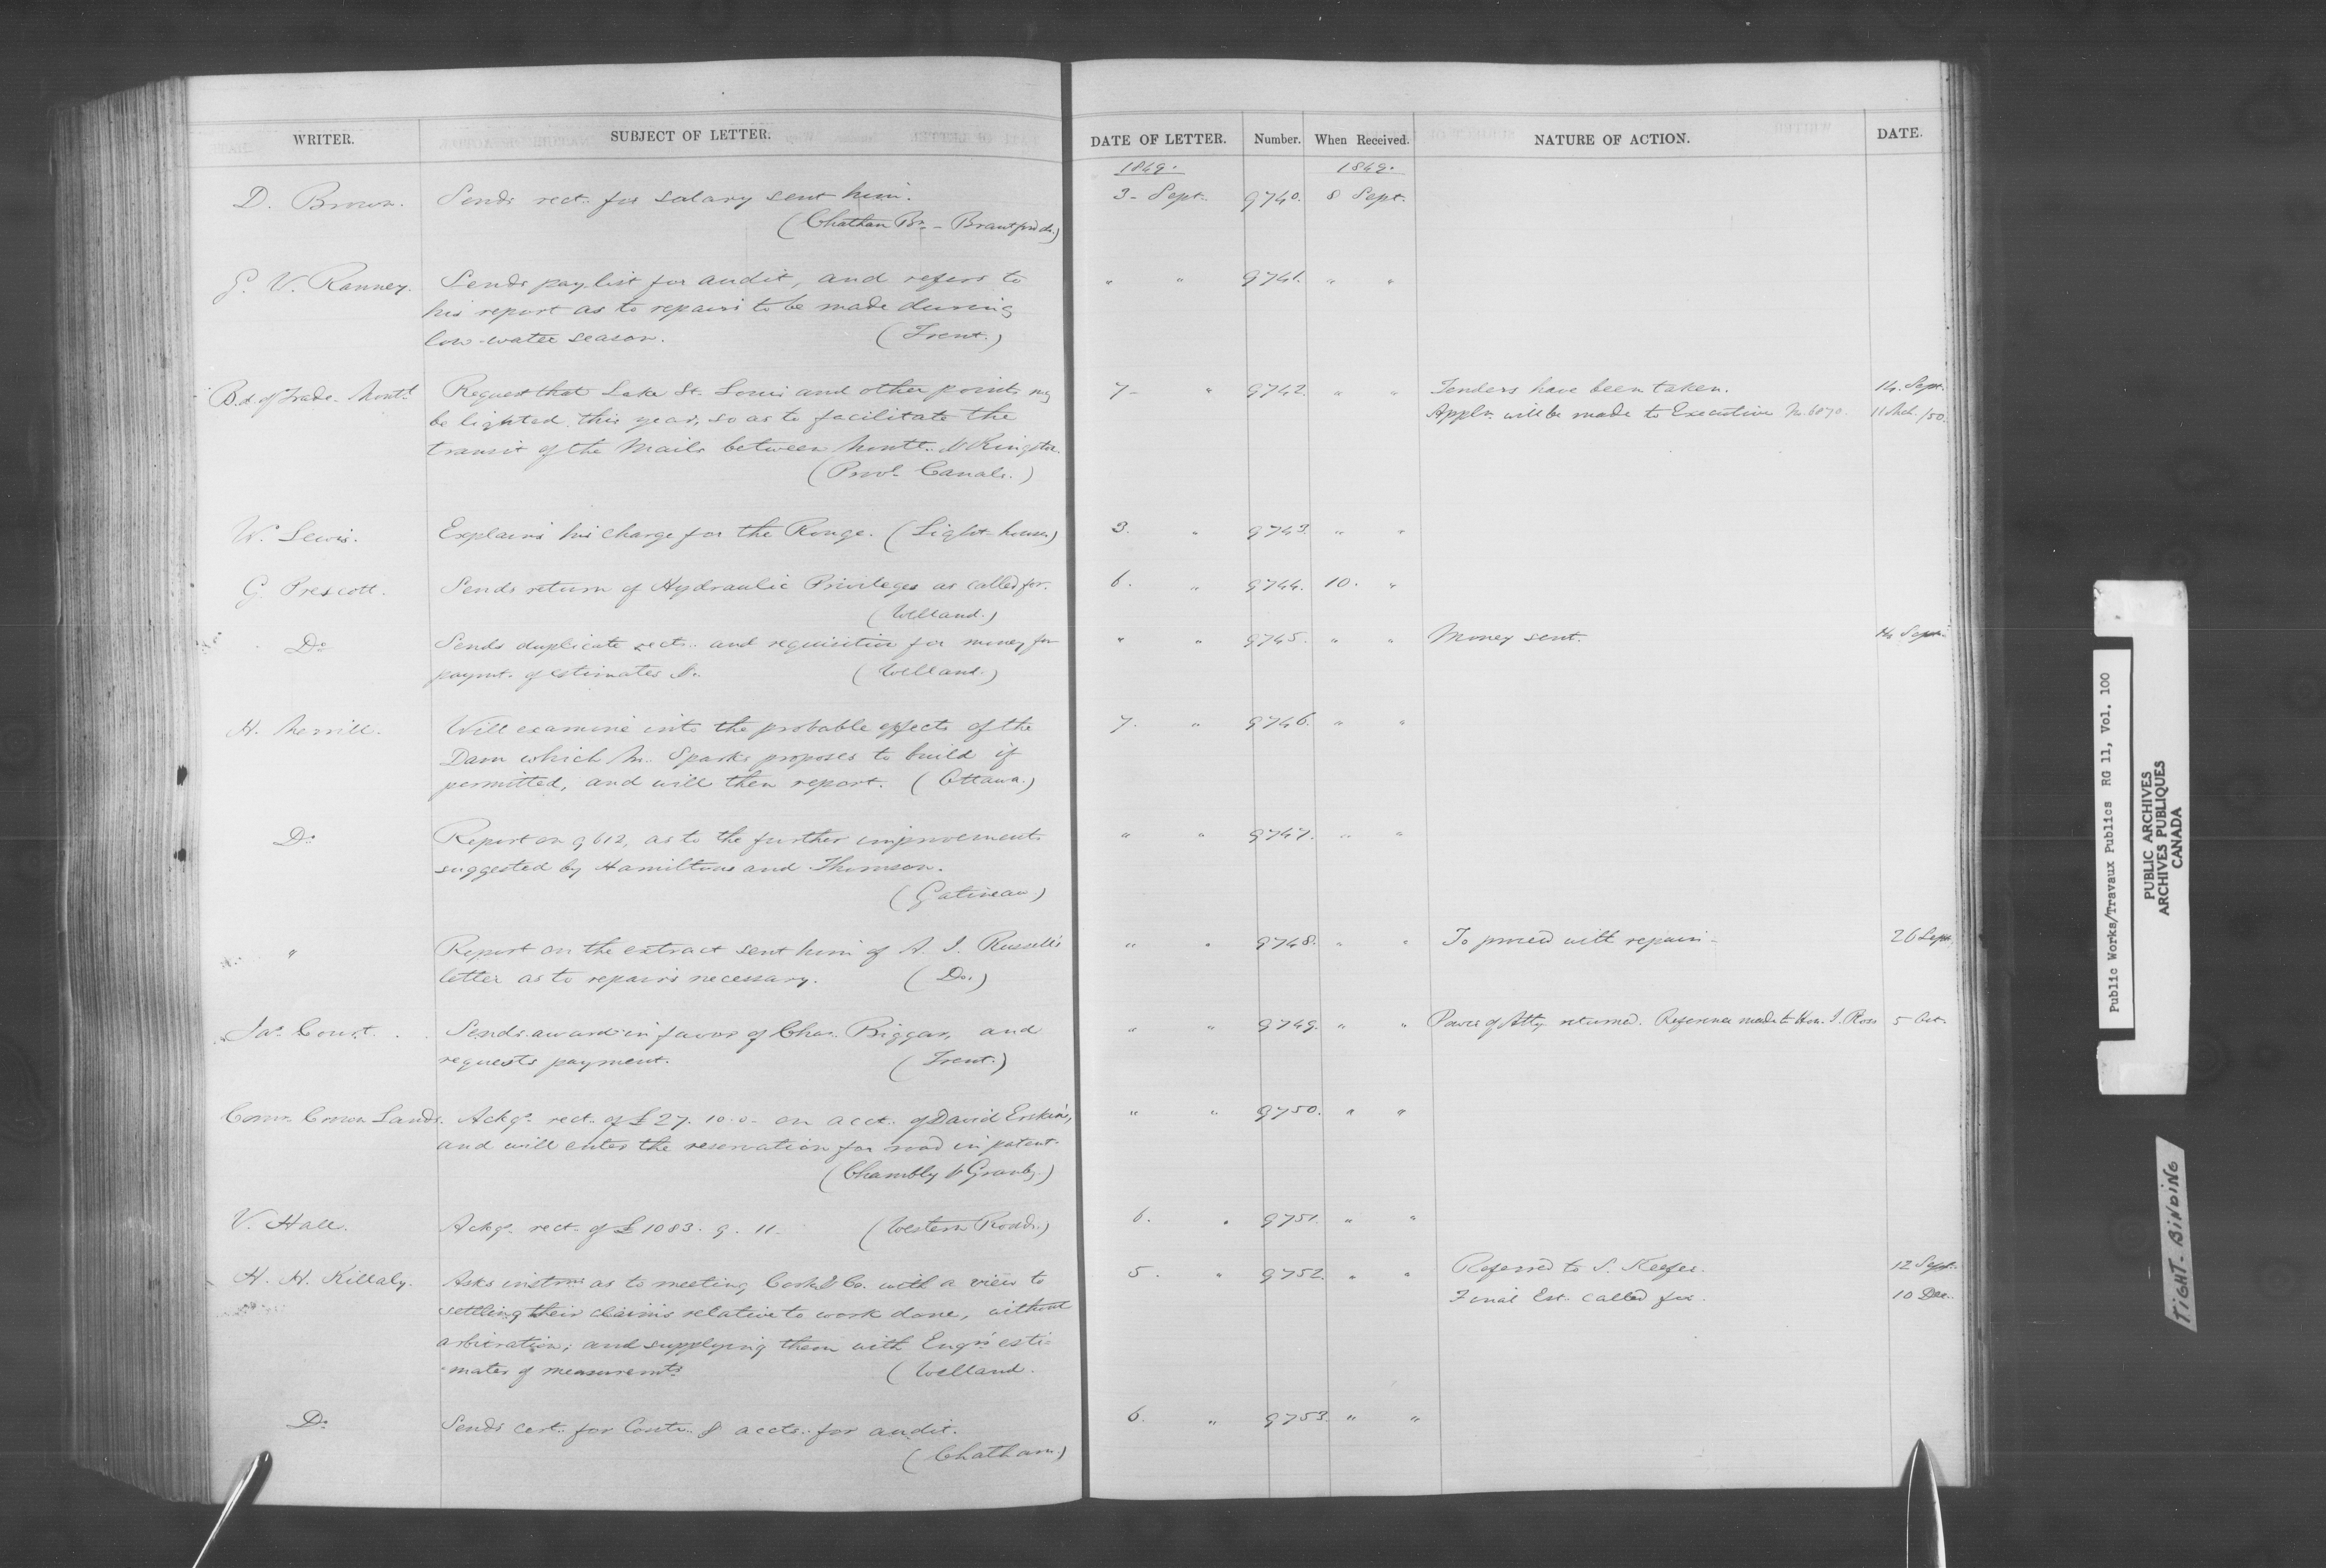 WRITER. SUBJECT OF LETTER. DATE OF LETTER. Number. When Received. NATURE OF ACTION. DATE.
1849. 1849.
D. Brown. Sends rect. for salary sent him. 3 - Sept. 9740. 8 Sept.
(Chatham Br. - Brantford &c.)
G. V. Ranney. Sends pay list for audit, and refers to " " 9741. " "
his report as to repairs to be made during
low-water season. (Trent.)
Bd. of Trade. Montl. Request that Lake St. Louis and other points my 7 - " 9742. " " Tenders have been taken. 14. Sept.
be lighted this year, so as to facilitate the Appln. will be made to Executive 11 Mch. /50.
transit of the Mails between Montl. & Kingston.
(Provl. Canals.)
W. Lewis. Explains his charge for the Rouge. (Light-houses) 3. " 9743. " "
G. Prescott. Sends return of Hydraulic Privileges as called for. 6. " 9744. 10. "
(Welland.)
Do Sends duplicate rects. and requisition for money for " " 9745. " " Money sent. 14 Sept.
paymt. of estimates &c. (Welland.)
H. Merrill. Will examine into the probable effects of the 7. " 9746. " "
Dam which Mr. Sparks proposes to build if
permitted, and will then report. (Ottawa.)
Do. Report on 9612, as to the further improvements " " 9747. " "
suggested by Hamiltons and Thomson.
(Gatineau)
" Report on the extract sent him of A. J. Russell's " " 9748. " " To proceed with repairs - 26 Sept.
letter as to repairs necessary. (Do.)
Jas. Court. Sends award in favor of Chas. Biggar, and " " 9749. " " Power of Atty. returned. Reference made to Hon. J. Ross 5 Oct.
requests payment. (Trent.)
Comr. Crown Lands. Ackgs. rect. of £27. 10. 0. on acct. of David Erskine, " " 9750. " "
and will enter the reservation for road in patent.
(Chambly & Granby.)
V. Hall. Ackgs. rect. of £1083. 9. 11. (Western Roads.) 6. " 9751. " "
H. H. Killaly. Asks instrns. as to meeting Cook & Co. with a view to 5. " 9752. " " Referred to S. Keefer. 12 Sept.
settling their claims relative to work done, without Final Est. called for. 10 Dec.
arbitration; and supplying them with Engrs. esti-
-mates of measuremts. (Welland.
Do. Sends cert. for Contr. & accts. for audit. 6. " 9753. " "
(Chatham.)
Public Works/Travaux Publics RG 11, Vol. 100
PUBLIC ARCHIVES
ARCHIVES PUBLIQUES
CANADA
TIGHT-BINDING